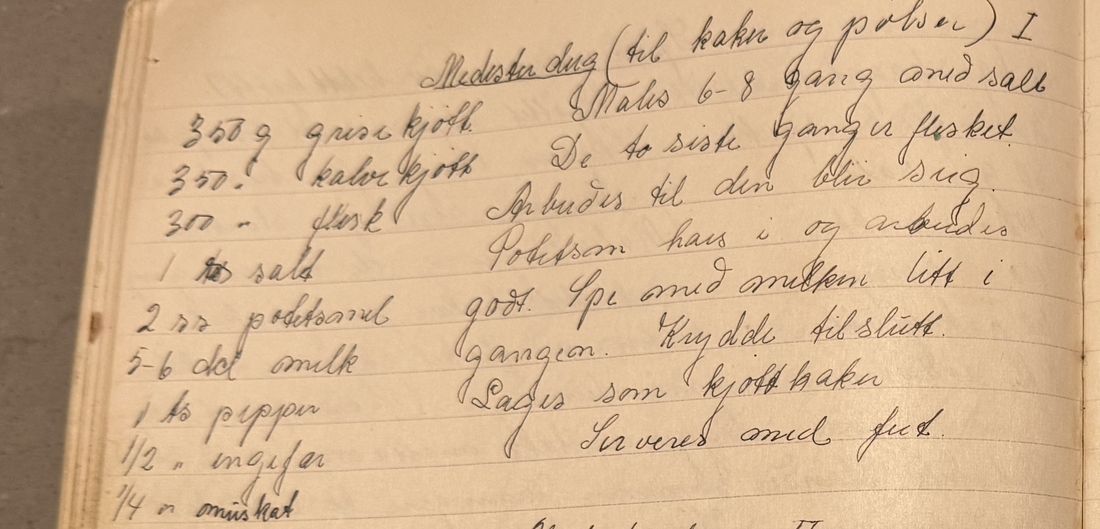 Medister deig (til kaker og pølser) I
350 g grisekjøtt.
350 " kalvekjøtt
300 " flesk
1 ts salt
2 ss potetmel
5-6 dcl melk
1 ts pepper
1/2 " ingefær
1/4 " muskat
Males 6-8 gang med salt
De to siste ganger flesket.
Arbeides til den blir seig.
Potetsm haes i og arbeides
godt. Spe med melken litt i
gangen. Krydde tilslutt.
Lages som kjøttkaker
Serveres med fett.
II